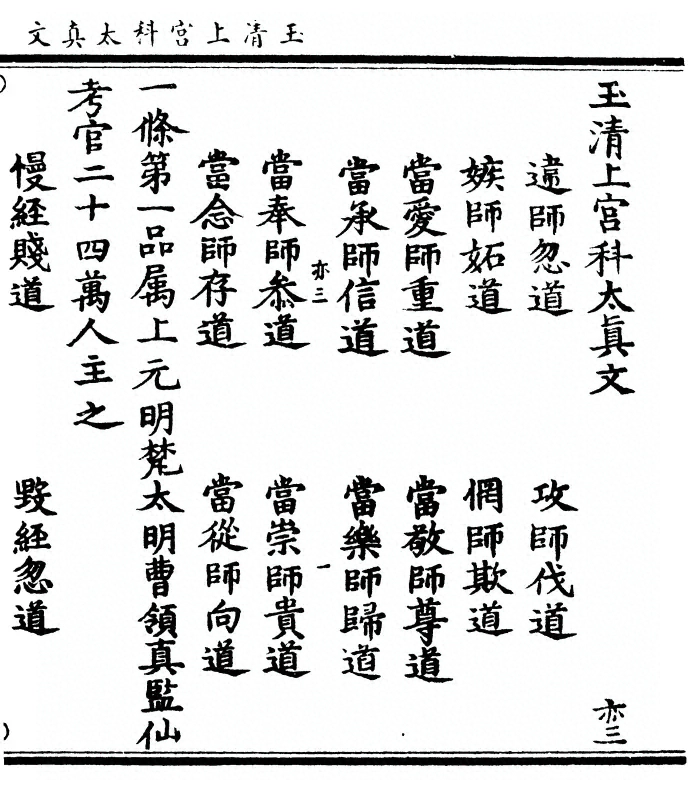 玉清上宮科太真文
玉清上宮科太眞文 亦三
違師忽道 攻師伐道
嫉師妬道 罔師欺道
當愛師重道 當敬師尊道
當承師信道 當樂師歸道
亦三 一
當奉師叅道 當崇師貴道
當念師存道 當從師向道
一條第一品属上元明梵太明曹領真監仙
考官二十四萬人主之
慢經賤道 毀經忽道